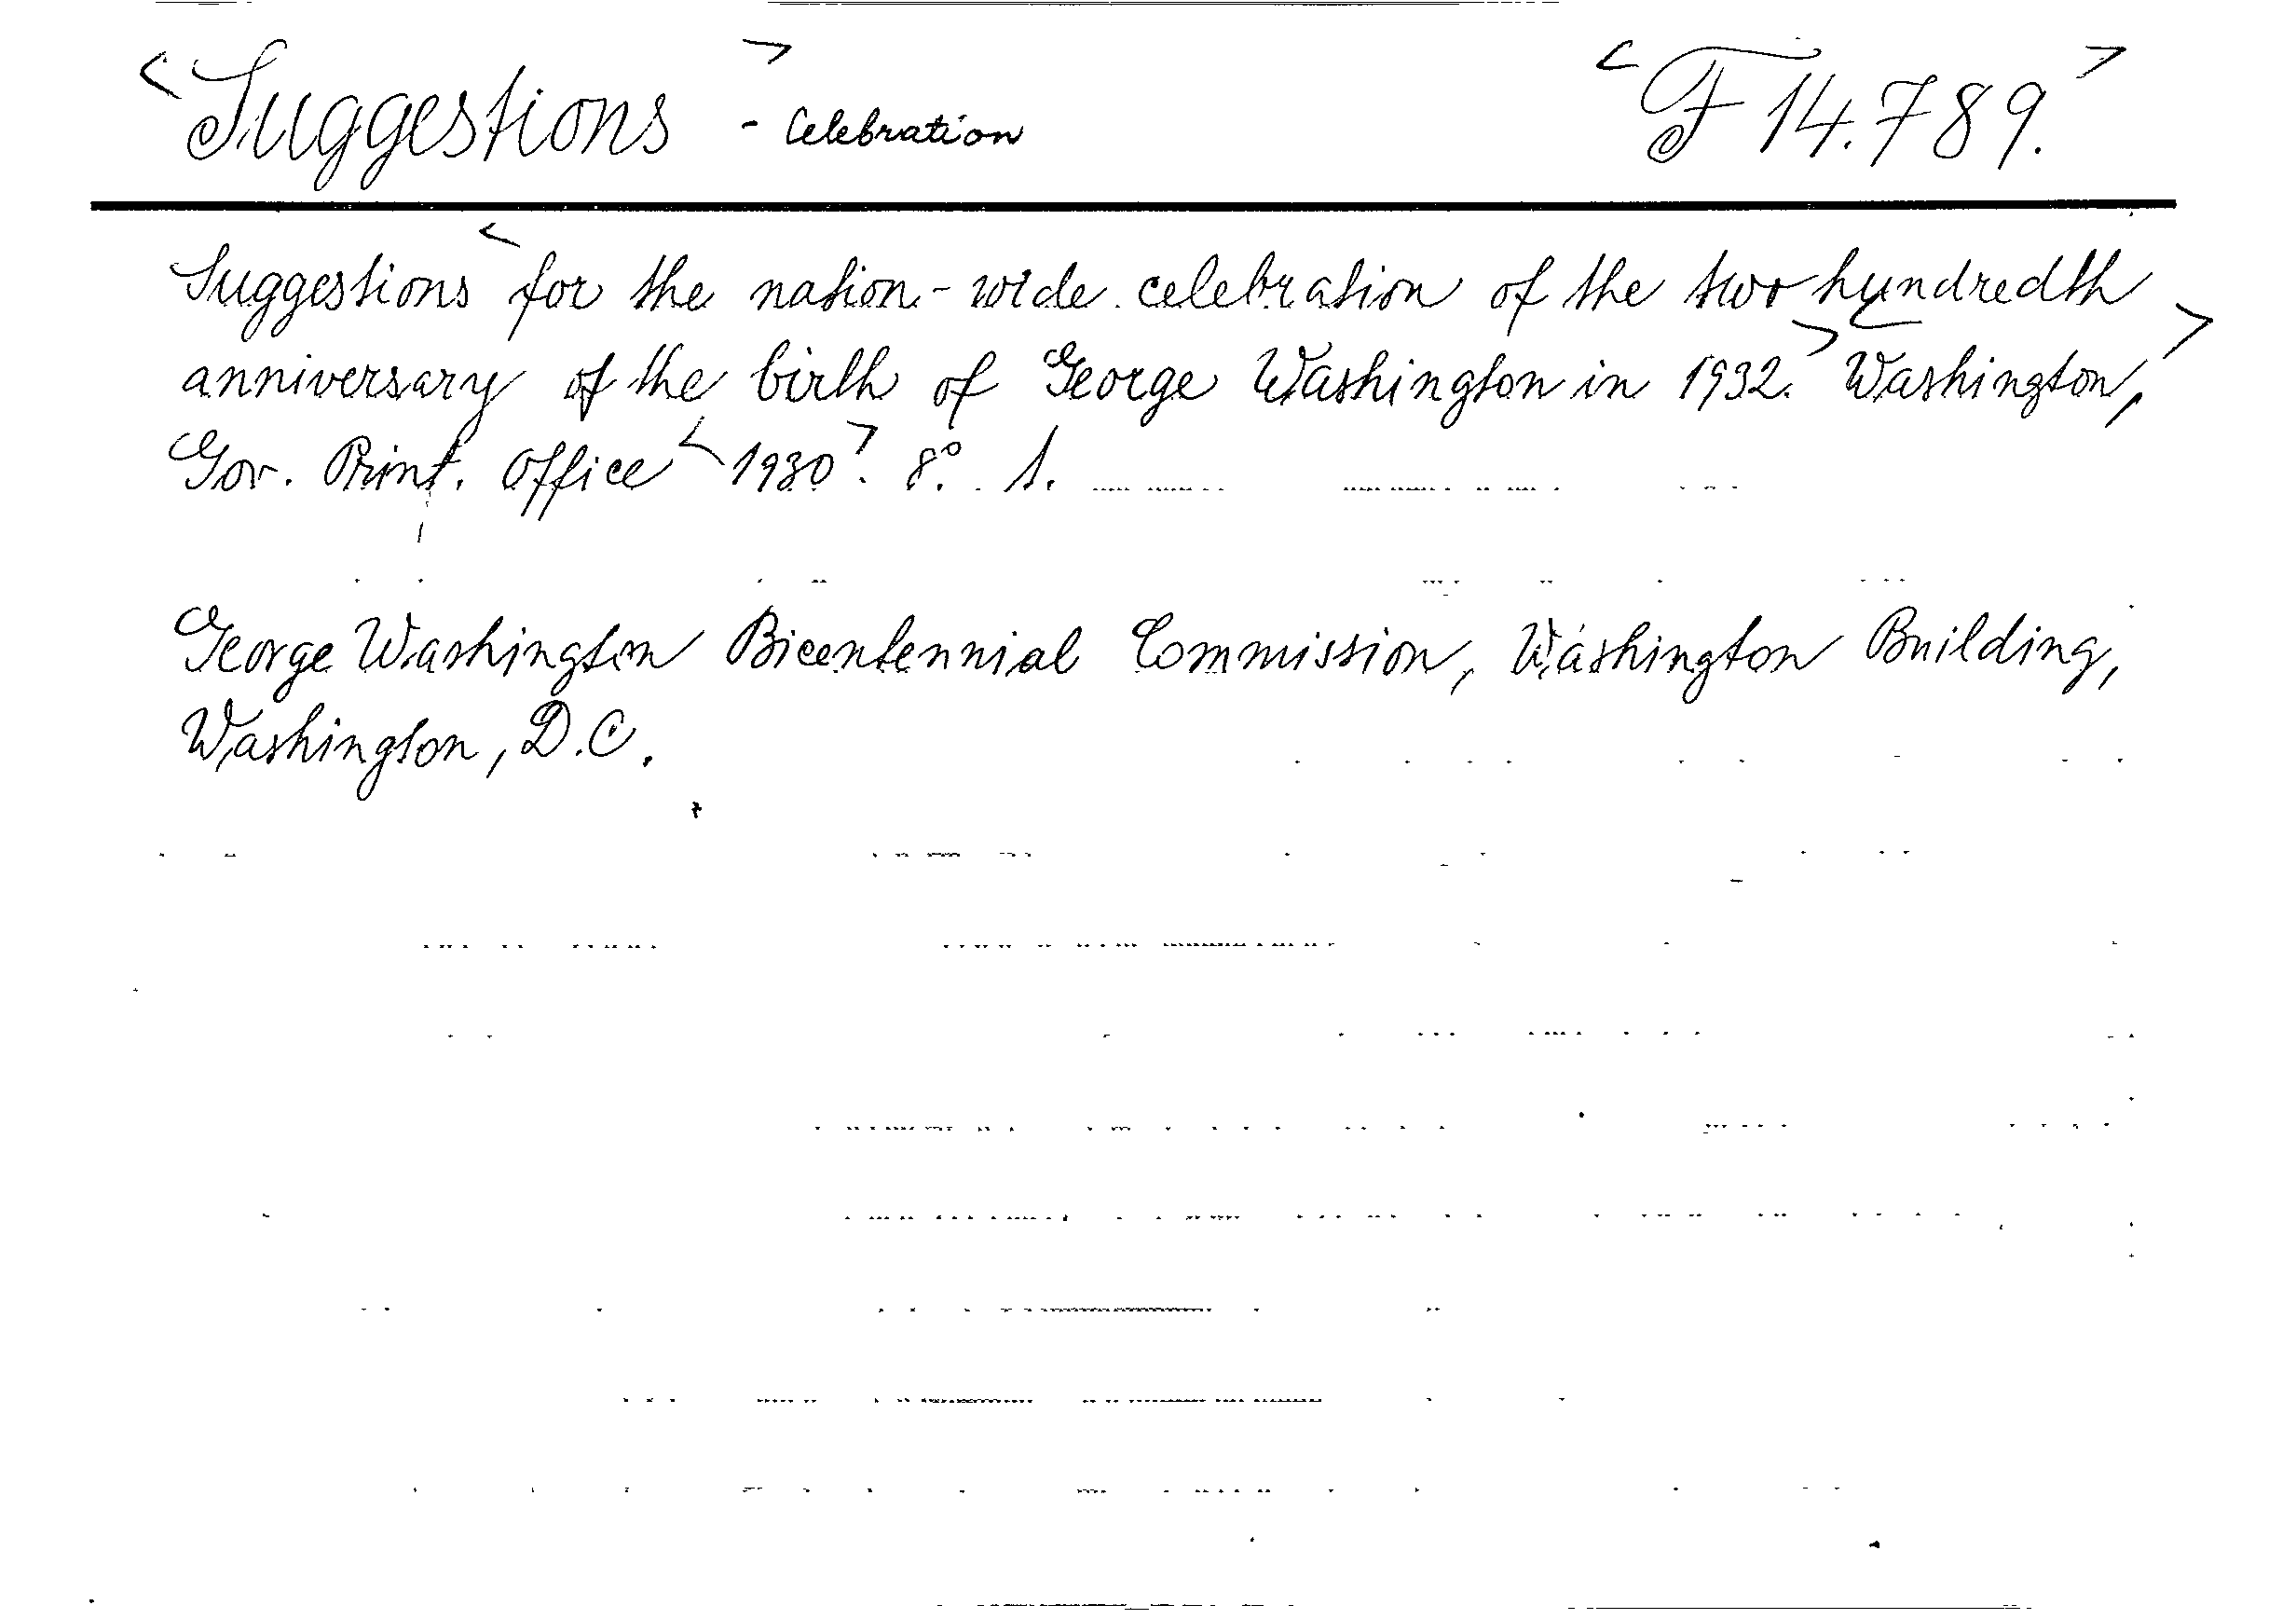 <Suggestions> - Celebration <F 14.789.>
Suggestions <for the nation-wide celebration of the two hundredth
anniversary of the birth of George Washington in 1932.> <Washington,>
Gov. Print. Office <1930>. 8.° 1.
George Washington Bicentennial Commission, Washington Building,
Washington, D.C.